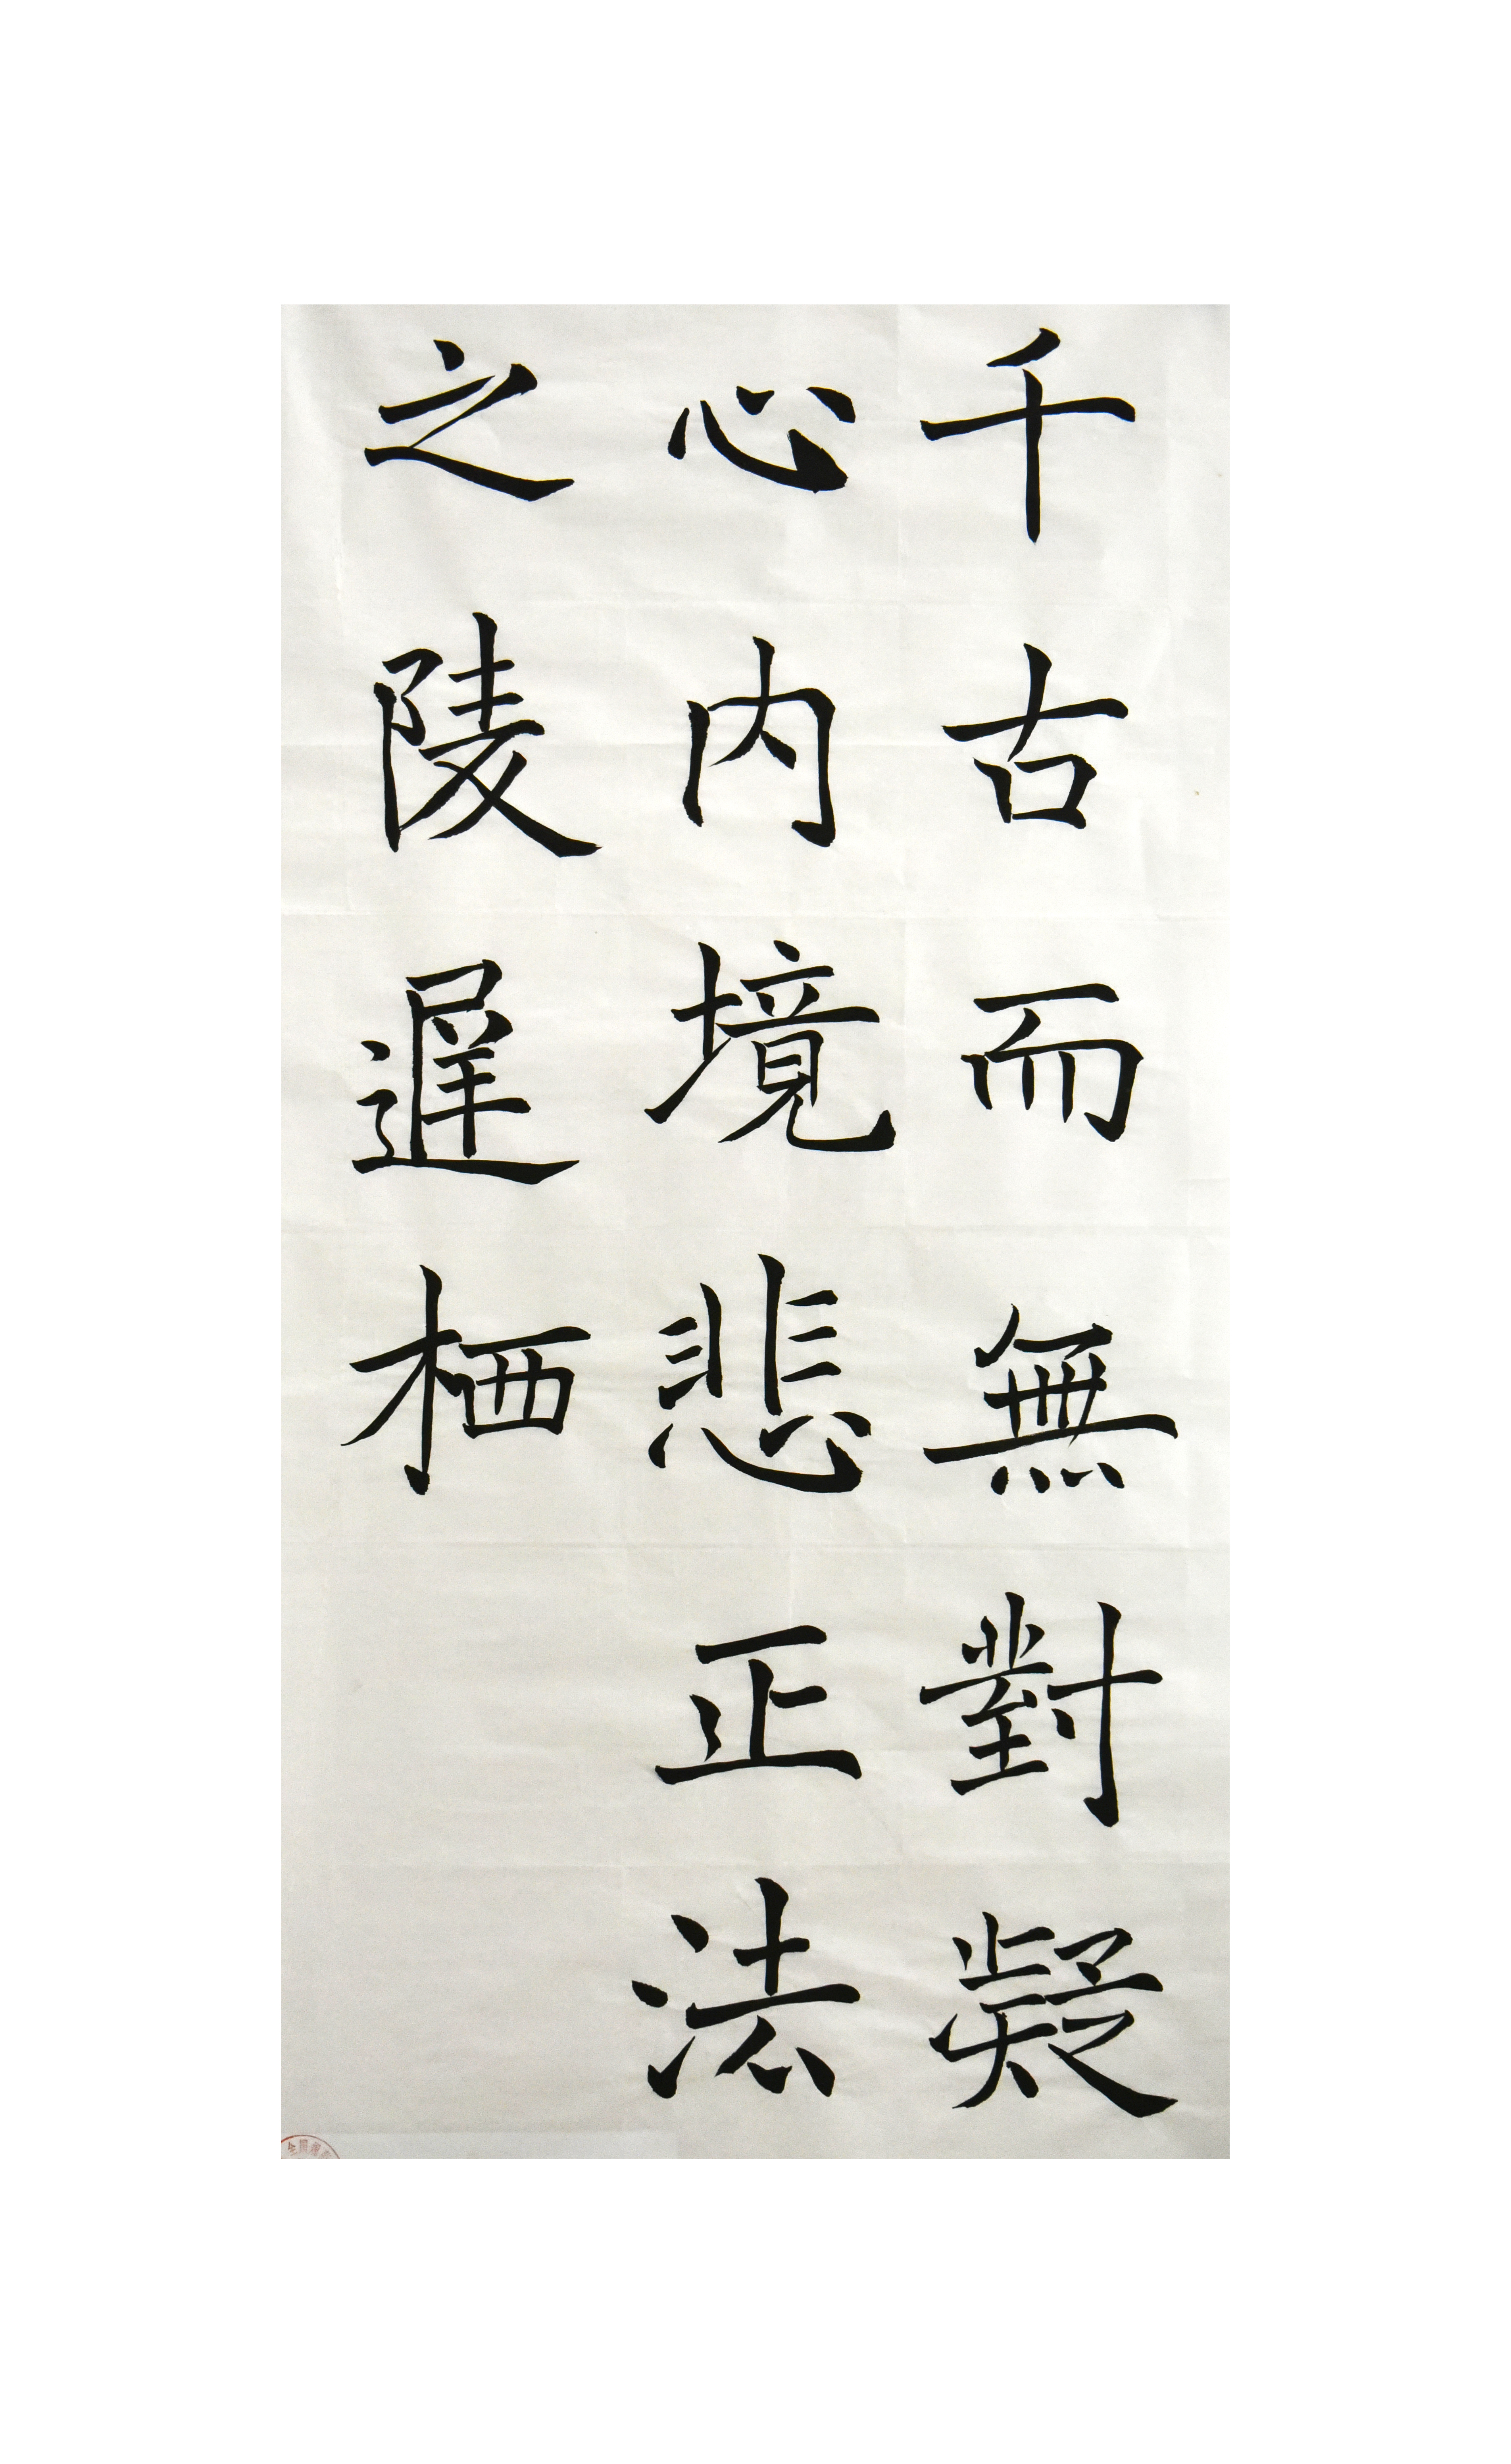 千古而無對凝
心内境悲正法
之陵遲栖